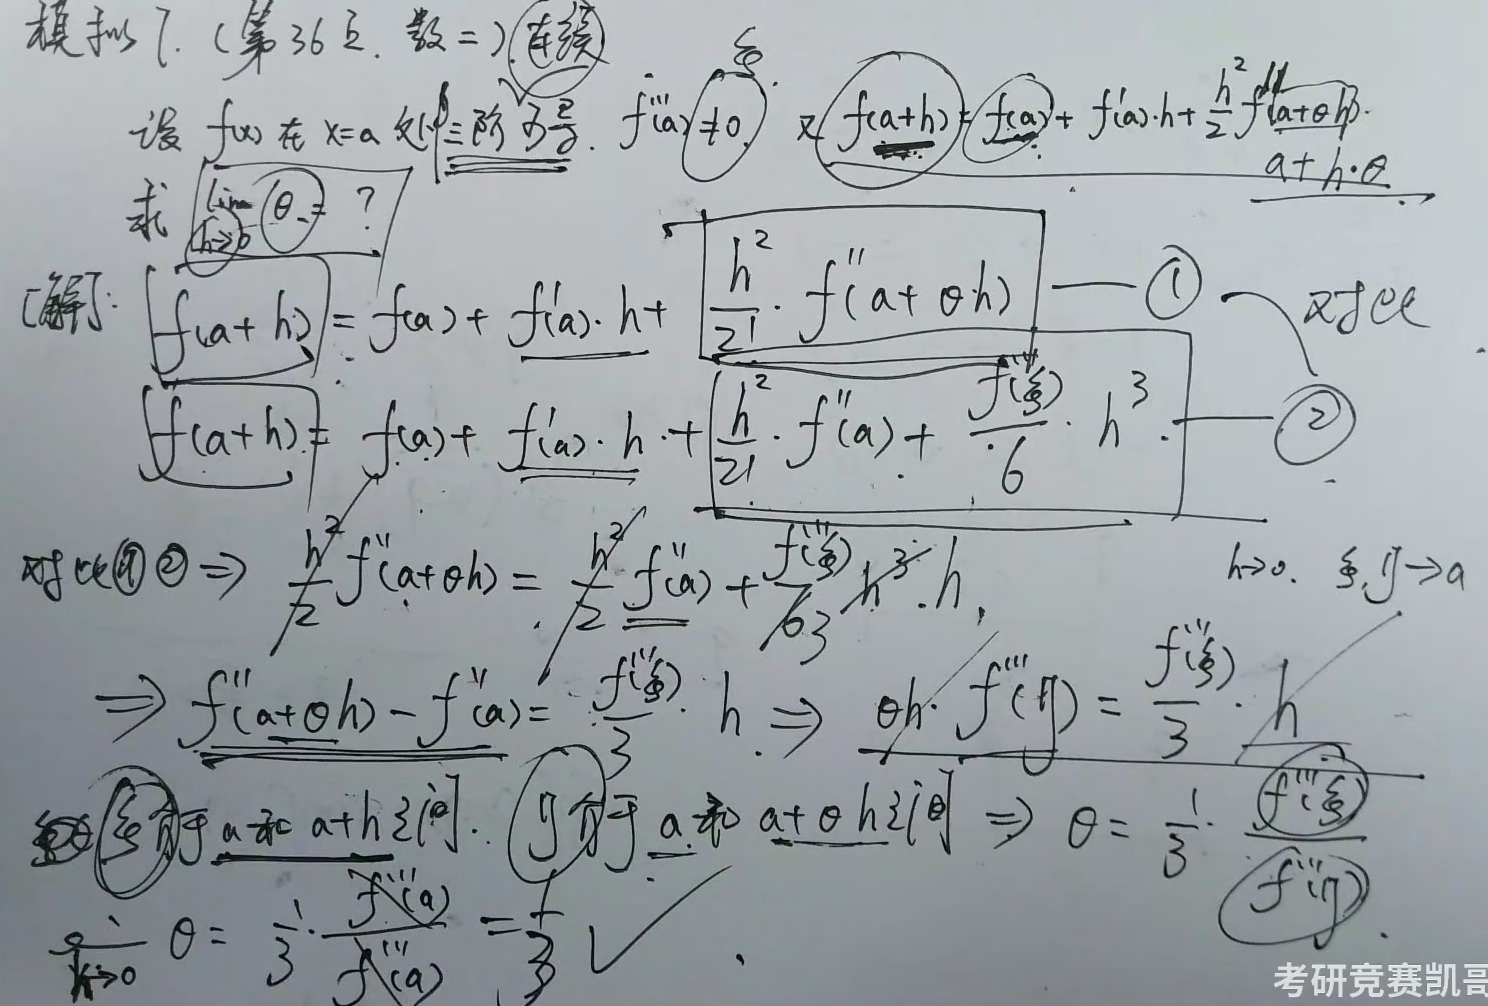 模拟7.(第36区.数二)连续
设 f(x) 在 x=a 处三阶可导. f'''(a)≠0. 又 f(a+h)=f(a)+f'(a)·h+h²/2 f''(a+θh).
ξ
a+h·θ
求 lim h→0 θ = ?
[解]: f(a+h) = f(a)+f'(a)·h+ h²/2! · f''(a+θ·h) — ①
对比
f(a+h) = f(a)+f'(a)·h·+ h²/2! · f''(a)+ f'''(ξ)/6 · h³. — ②
对比①② ⇒ h²/2 f''(a+θh) = h²/2 f''(a) + f'''(ξ)/6 3 h³·h,
h→0. ξ,η→a
⇒ f''(a+θh) - f''(a) = f'''(ξ)/3 · h. ⇒ θh· f'''(η) = f'''(ξ)/3 · h
ξ介于 a和 a+h之间. η介于 a和 a+θh之间 ⇒ θ= 1/3 · f'''(ξ)/f'''(η).
h→0 θ= 1/3 · f'''(a)/f'''(a) = 1/3 ✓
考研竞赛凯哥